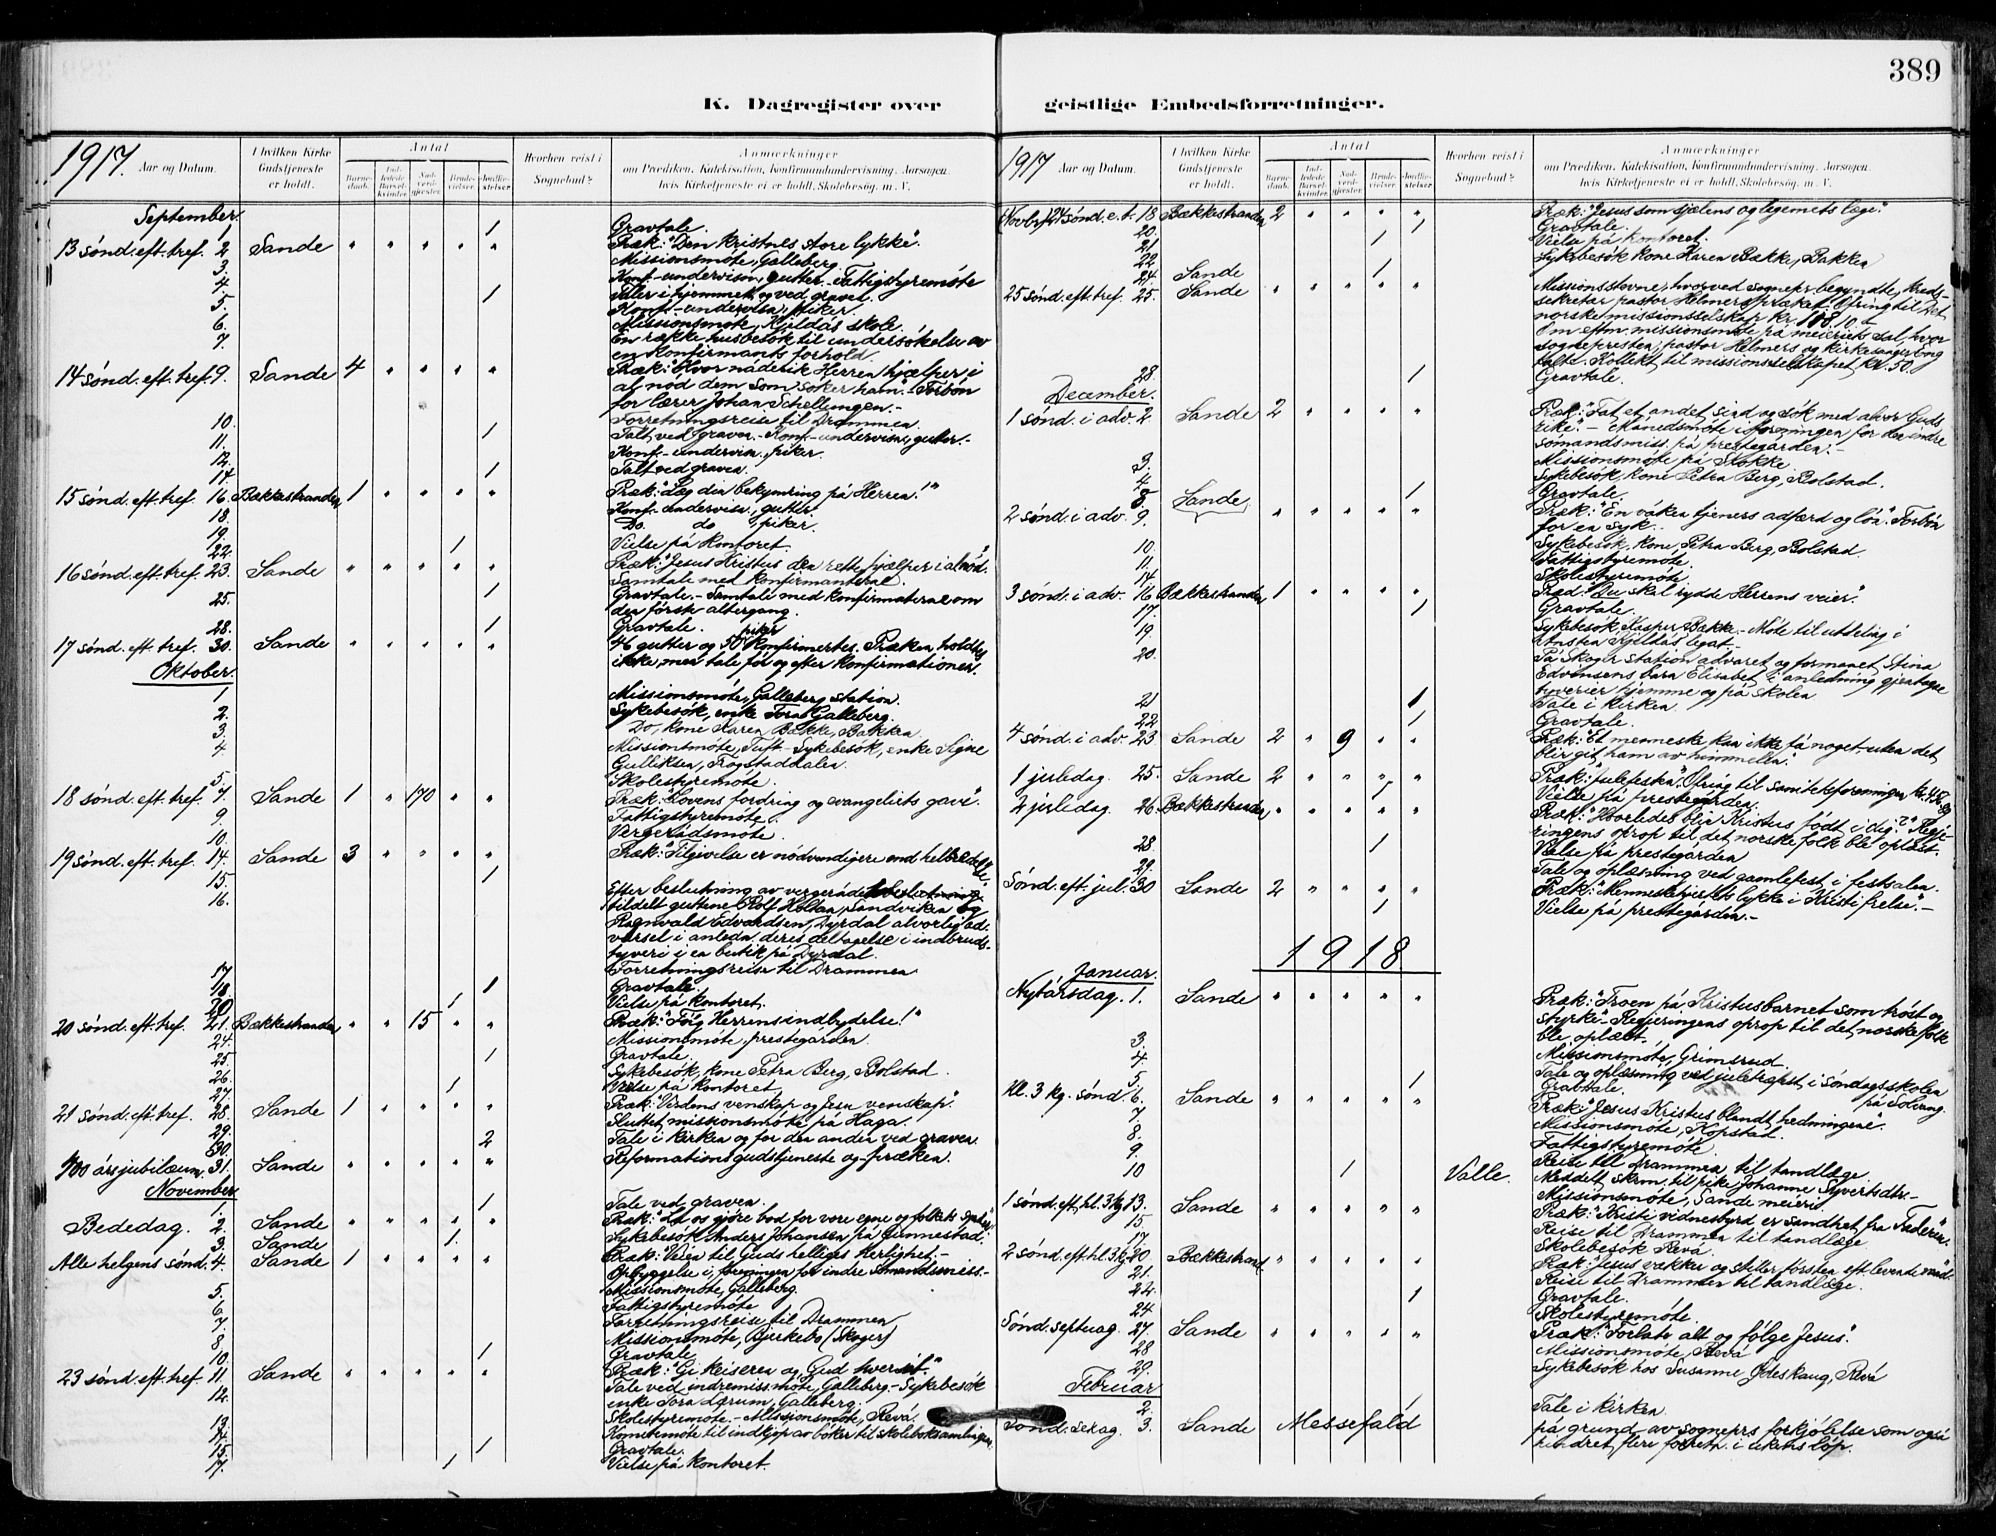 389
K. Dagregister over
geistlige Embedsforretninger.
1917. Aar og Datum. I hvilken Kirke Gudstjeneste er holdt. Antal Barnedaab. Indledede Barselkvinder. Nadverdgjester. Brudevielser. Jordfæstelser. Hvorhen reist i Sognebud? Anmærkninger om Prædiken, Katekisation, Konfirmandundervisning, Aarsagen, hvis Kirketjeneste ei er holdt, Skolebesøg, m. V.
September.
1 1 Gravtale.
13 sønd. eft. tref. 2 Sande " " " " " Præk: "Den kristnes store lykke".
Missionsmøte, Galleberg.
3. Konf.-undervisn., gutter. Fattigstyremøte
4. 1 Taler i hjemmet og ved graven.
5. Konf.-undervisn., piker.
6. Missionsmøte, Kjeldås skole.
7. En række husbesøk til undersøkelse av
en konfirmants forhold.
14 sønd. eft. tref. 9. Sande 4 " " " " Præk: "Hvor nåderik Herren hjælper i
al nød dem som søker ham". Forbøn
for lærer Johan Schellungen.-
10. Forretningsreise til Drammen
11. 1 Talt ved graven.- Konf.-undervisn., gutter.-
12. Konf-undervisn., piker.
14. 1 Talt ved graven
15 sønd. eft. tref. 16. Bækkestranden 1 " " " " Præk: "Læg din bekymring på Herren!"
18. Konf.-undervisn., gutter.
19. Do. do piker.
22. 1 Vielse på kontoret.
16 sønd. eft. tref. 23. Sande " " " " " Præk: "Jesus Kristus den rette hjælper i al nød."
Samtale med konfirmanterne
25. 1 Gravtale.- Samtale med konfirmaterne om
den første altergang.
28. 1 Gravtale.
17 sønd. eft. tref. 30. Sande " " " " " 46 gutter og 50 piker konfirmertes. Præken holdtes
ikke, men tale før og efter konfirmationen.
Oktober.
1 Missionsmøte, Galleberg station.
2. Sykebesøk, enke Tora Galleberg.
3. Do, kone Karen Bække, Bakken
4 Missionsmøte, Tuft - Sykebesøk, enke Signe
Gulliksen, Frogstaddalen.
5. Skolestyremøte.
18 sønd. eft. tref. 7. Sande 1 " 170 " " Præk: "Lovens fordring og evangeliets gave".
9. Fattigstyremøte.
10. Vergerådsmøte.
19 sønd. eft. tref. 14. Sande 3 " " " " Præk: "Tilgivelse er nødvendigere end helbredelse".
15. 1
16. Efter beslutning av vergerådet
tildelt guttene Rolf Holtan, Sandviken og
Ragnvald Edvardsen, Dyrdal alvorlig ad-
varsel i anledn. deres deltagelse i indbruds-
tyveri i en butik på Dyrdal.
17 Forretningsreise til Drammen
18 1 Gravtale.
20 1 Vielse på kontoret.
20 sønd. eft. tref. 21. Bækkestranden " " 15 " " Præk: "Følg Herrens indbydelse!"
24. Missionsmøte, prestegården.
25 1 Gravtale.
26. Sykebesøk, kone Petra Berg, Bolstad.
27. 1 Vielse på kontoret
21 sønd. eft. tref. 28. Sande 1 " " " " Præk: "Verdens venskap og Jesu venskap".
29. Sluttet missionsmøte på Haga.
30. 2 Tale i kirken og for den anden ved graven.
400 årsjubilæum. 31. Sande " " " " " Reformationsgudstjeneste og præken.
November
1. 1 Tale ved graven
Bededag. 2. Sande " " " " " Præk: "Lad os gjøre bod for vore egne og folkets synder".
3. Sande 1 Sykebesøk Anders Johansen på Gunnestad.
Alle helgens sønd. 4. Sande 1 " " " " Præk: "Veien til Guds helliges herlighet.-
Opbyggelse i foreningen for indre sømandsmiss.-
5. Missionsmøte, Galleberg.
6. Fattigstyremøte
7. Forretningsreise til Drammen
8 Missionsmøte, Bjerkebo (Skoger)
10. 1 Gravtale
23 sønd. eft. tref. 11. Sande " " " " " Præk: "Gi keiseren og Gud hver sit"
12. Tale ved indremiss.møte, Galleberg.- Sykebesøk
enke Tora Lærum, Galleberg.
13. Skolestyremøte.- Missionsmøte, Revå.
14. Komitemøte til indkjøp av bøker til skoleboksamlingen.
15. 1 Gravtale.
17. 1 Vielse på kontoret.
1917 Aar og Datum. I hvilken Kirke Gudstjeneste er holdt. Antal Barnedaab. Indledede Barselkvinder. Nadverdgjester. Brudevielser. Jordfæstelser. Hvorhen reist i Sognebud? Anmærkninger om Prædiken, Katekisation, Konfirmandundervisning, Aarsagen, hvis Kirketjeneste ei er holdt, Skolebesøg, m. V.
(Novbr.) 24 sønd. e. t. 18 Bækkestranden 2 " " " " Præk: "Jesus som sjælens og legemets læge".
20. 1 Gravtale.
21 1 Vielse på kontoret.
22 Sykebesøk kone Karen Bække, Bakken
24. Sande 1
25 sønd. eft. tref. 25. Sande " " " " " Missionsstevne, hvorved sognepr. begyndte, kreds-
sekretær pastor Helmers præket. Ofring til Det
norske missionsselskap kr. 108.10.
Om eftm. missionsmøte på meieriets sal, hvor
sognepresten, pastor Helmers og kirkesanger Eng
talte. Kollekt til missionsselskapet kr. 50.
28. 1 Gravtale.
December.
1 sønd. i adv. 2. Sande 2 " " " " Præk: "Fat et andet sind og søk med alvor Guds
rike".- Månedsmøte i foreningen for den indre
sømandsmiss. på prestegården.-
3. Missionsmøte på Stokke
4 Sykebesøk, kone Petra Berg, Bolstad.
8. Sande 1 Gravtale.
2 sønd. i adv. 9. " " " " " Præk: "En våken tjeners adfærd og løn". Forbøn
for en syk.
10. Sykebesøk, kone Petra Berg, Bolstad.
11. Fattigstyremøte.
14 Skolestyremøte.
3 sønd. i adv. 16 Bækkestranden 1 " " " " Præd: "Du skal rydde Herrens veier".
17 1 Gravtale.
19. Sykebesøk Kasper Bække.- Møte til utdeling i
Ansten Kjeldås legat.-
20. På Skoger station advaret og formanet Stina
Edvardsens Sara Elisabet i anledning gjentagne
tyverier hjemme og på skolen
21 1 Tale i kirken
22 1 Gravtale.
4 sønd. i adv. 23 Sande 2 " 9 " " Præk: "Et menneske kan ikke få noget, uten det
blir git ham av himmelen".
1 juledag. 25. Sande 2 " " " " Præk: "Julefesten". Ofring til samiteteforeningen
1 Vielse på prestegården.
2 juledag. 26. Bækkestranden " " " " " Præk: "Hvorledes blir Kristus født i dig?" Regje-
ringens oprop til det norske folk ble oplæst.
28. 1 Vielse på prestegården
29. Tale og oplæsning ved gamlefest i festsalen.
Sønd. eft. jul. 30 Sande 2 " " " " Præk: "Menneskelivets lykke i Kristi frelse".-
1 Vielse på prestegården.-
1918
Januar.
Nytårsdag. 1. Sande " " " " " Præk: "Troen på Kristusbarnet som trøst og
styrke".- Regjeringens oprop til det norske folk
ble oplæst.
3. Missionsmøte, Grimsrud.
4. Tale og oplæsning ved juletræfest i søndagsskolen
på Solvang.
5 1 Gravtale.
Hl. 3 kg. sønd. 6. Sande " " " " " Præk: "Jesus Kristus blandt hedningene".
7. Missionsmøte, Kopstad.
8. Fattigstyremøte.
9. Reise til Drammen til tandlæge
10 1 Valle. Meddelt skrm. til pike Johanne Syvertsdtr.-
Missionsmøte, Sande meieri.
1 sønd. eft. hl. 3 kg 13. Sande " " " " " Præk: "Kristi vidnesbyrd er sandhet fra Faderen".
15 Reise til Drammen til tandlæge
17 Skolebesøk Revå.
2 sønd. eft. hl. 3 kg. 20. Bækkestrand " " " " " Præk: "Jesus vækker og stiller tørsten eft. levende vand".
21. Reise til Drammen til tandlæge.
24. 1 Gravtale.
24 Skolestyremøte.
Sønd. septuag. 27. Sande " " " " " Præk: "Forlate alt og følge Jesus".
28 Missionsmøte, Revå
29. Sykebesøk hos Susanne Ødeskaug, Revå
Februar
2. 1 Tale i kirken.
Sønd. seksag. 3. Sande Messefald på grund av sogneprs forkjølelse som også
hindret flere forretn. i ukens løp.